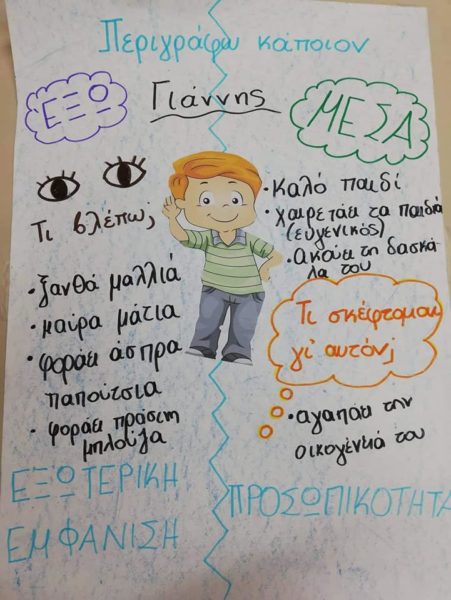 Περιγράφω κάποιον
Γιάννης
ΕΞΩ
Τι βλέπω;
• ξανθά μαλλιά
• μαύρα μάτια
• φοράει άσπρα
παπούτσια
• φοράει πράσινη
μπλούζα
ΕΞΩΤΕΡΙΚΗ
ΕΜΦΑΝΙΣΗ
ΜΕΣΑ
• καλό παιδί
• χαιρετάει τα παιδιά
(ευγενικός)
• ακούει τη δασκά
λα του
Τι σκέφτομαι
γι' αυτόν;
• αγαπάει την
οικογένειά του
ΠΡΟΣΩΠΙΚΟΤΗΤΑ